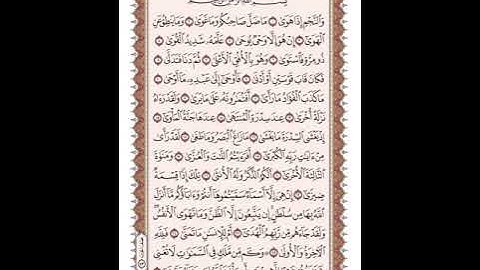 بِسْمِ اللَّهِ الرَّحْمَٰنِ الرَّحِيمِ
وَٱلنَّجْمِ إِذَا هَوَىٰ ۝ مَا ضَلَّ صَاحِبُكُمْ وَمَا غَوَىٰ ۝ وَمَا يَنطِقُ عَنِ
ٱلْهَوَىٰ ۝ إِنْ هُوَ إِلَّا وَحْىٌ يُوحَىٰ ۝ عَلَّمَهُۥ شَدِيدُ ٱلْقُوَىٰ ۝
ذُو مِرَّةٍ فَٱسْتَوَىٰ ۝ وَهُوَ بِٱلْأُفُقِ ٱلْأَعْلَىٰ ۝ ثُمَّ دَنَا فَتَدَلَّىٰ ۝
فَكَانَ قَابَ قَوْسَيْنِ أَوْ أَدْنَىٰ ۝ فَأَوْحَىٰٓ إِلَىٰ عَبْدِهِۦ مَآ أَوْحَىٰ ۝
مَا كَذَبَ ٱلْفُؤَادُ مَا رَأَىٰٓ ۝ أَفَتُمَٰرُونَهُۥ عَلَىٰ مَا يَرَىٰ ۝ وَلَقَدْ رَءَاهُ
نَزْلَةً أُخْرَىٰ ۝ عِندَ سِدْرَةِ ٱلْمُنتَهَىٰ ۝ عِندَهَا جَنَّةُ ٱلْمَأْوَىٰٓ ۝
إِذْ يَغْشَى ٱلسِّدْرَةَ مَا يَغْشَىٰ ۝ مَا زَاغَ ٱلْبَصَرُ وَمَا طَغَىٰ ۝ لَقَدْ رَأَىٰ
مِنْ ءَايَٰتِ رَبِّهِ ٱلْكُبْرَىٰٓ ۝ أَفَرَءَيْتُمُ ٱللَّٰتَ وَٱلْعُزَّىٰ ۝ وَمَنَوٰةَ
ٱلثَّالِثَةَ ٱلْأُخْرَىٰٓ ۝ أَلَكُمُ ٱلذَّكَرُ وَلَهُ ٱلْأُنثَىٰ ۝ تِلْكَ إِذًا قِسْمَةٌ
ضِيزَىٰٓ ۝ إِنْ هِىَ إِلَّآ أَسْمَآءٌ سَمَّيْتُمُوهَآ أَنتُمْ وَءَابَآؤُكُم مَّآ أَنزَلَ
ٱللَّهُ بِهَا مِن سُلْطَٰنٍ ۚ إِن يَتَّبِعُونَ إِلَّا ٱلظَّنَّ وَمَا تَهْوَى ٱلْأَنفُسُ ۖ
وَلَقَدْ جَآءَهُم مِّن رَّبِّهِمُ ٱلْهُدَىٰٓ ۝ أَمْ لِلْإِنسَٰنِ مَا تَمَنَّىٰ ۝ فَلِلَّهِ
ٱلْءَاخِرَةُ وَٱلْأُولَىٰ ۝ ۞ وَكَم مِّن مَّلَكٍ فِى ٱلسَّمَٰوَٰتِ لَا تُغْنِى